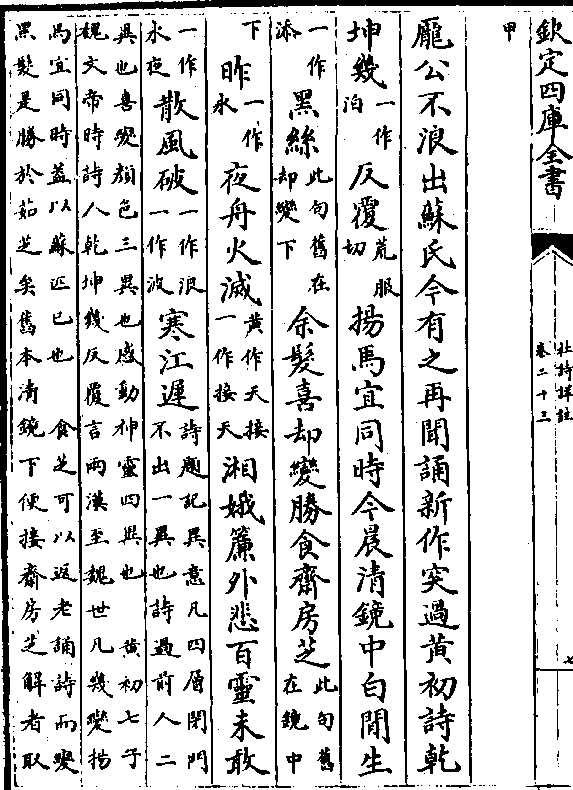 欽定四庫全書
杜詩詳註
卷二十三
七
甲
龐公不浪出蘇氏今有之再聞誦新作突過黃初詩乾
坤幾一作泊反覆荒服切揚馬宜同時今晨清鏡中白閒生
一作添黑絲此句舊在却變下余髮喜却變勝食齋房芝此句舊在鏡中
下昨一作永夜舟火滅黃作天接一作接天湘娥簾外悲百靈未敢
一作永夜散風破一作浪一作波寒江遲詩題記異意凡四層閉門不出一異也詩過前人二
異也喜變顏色三異也感動神靈四異也 黃初七子
魏文帝時詩人乾坤幾反覆言兩漢至魏世凡幾變揚
馬宜同時蓋以蘇匹己也 食芝可以返老誦詩而變
黑髮是勝於茹芝矣舊本清鏡下便接齋房芝解者取